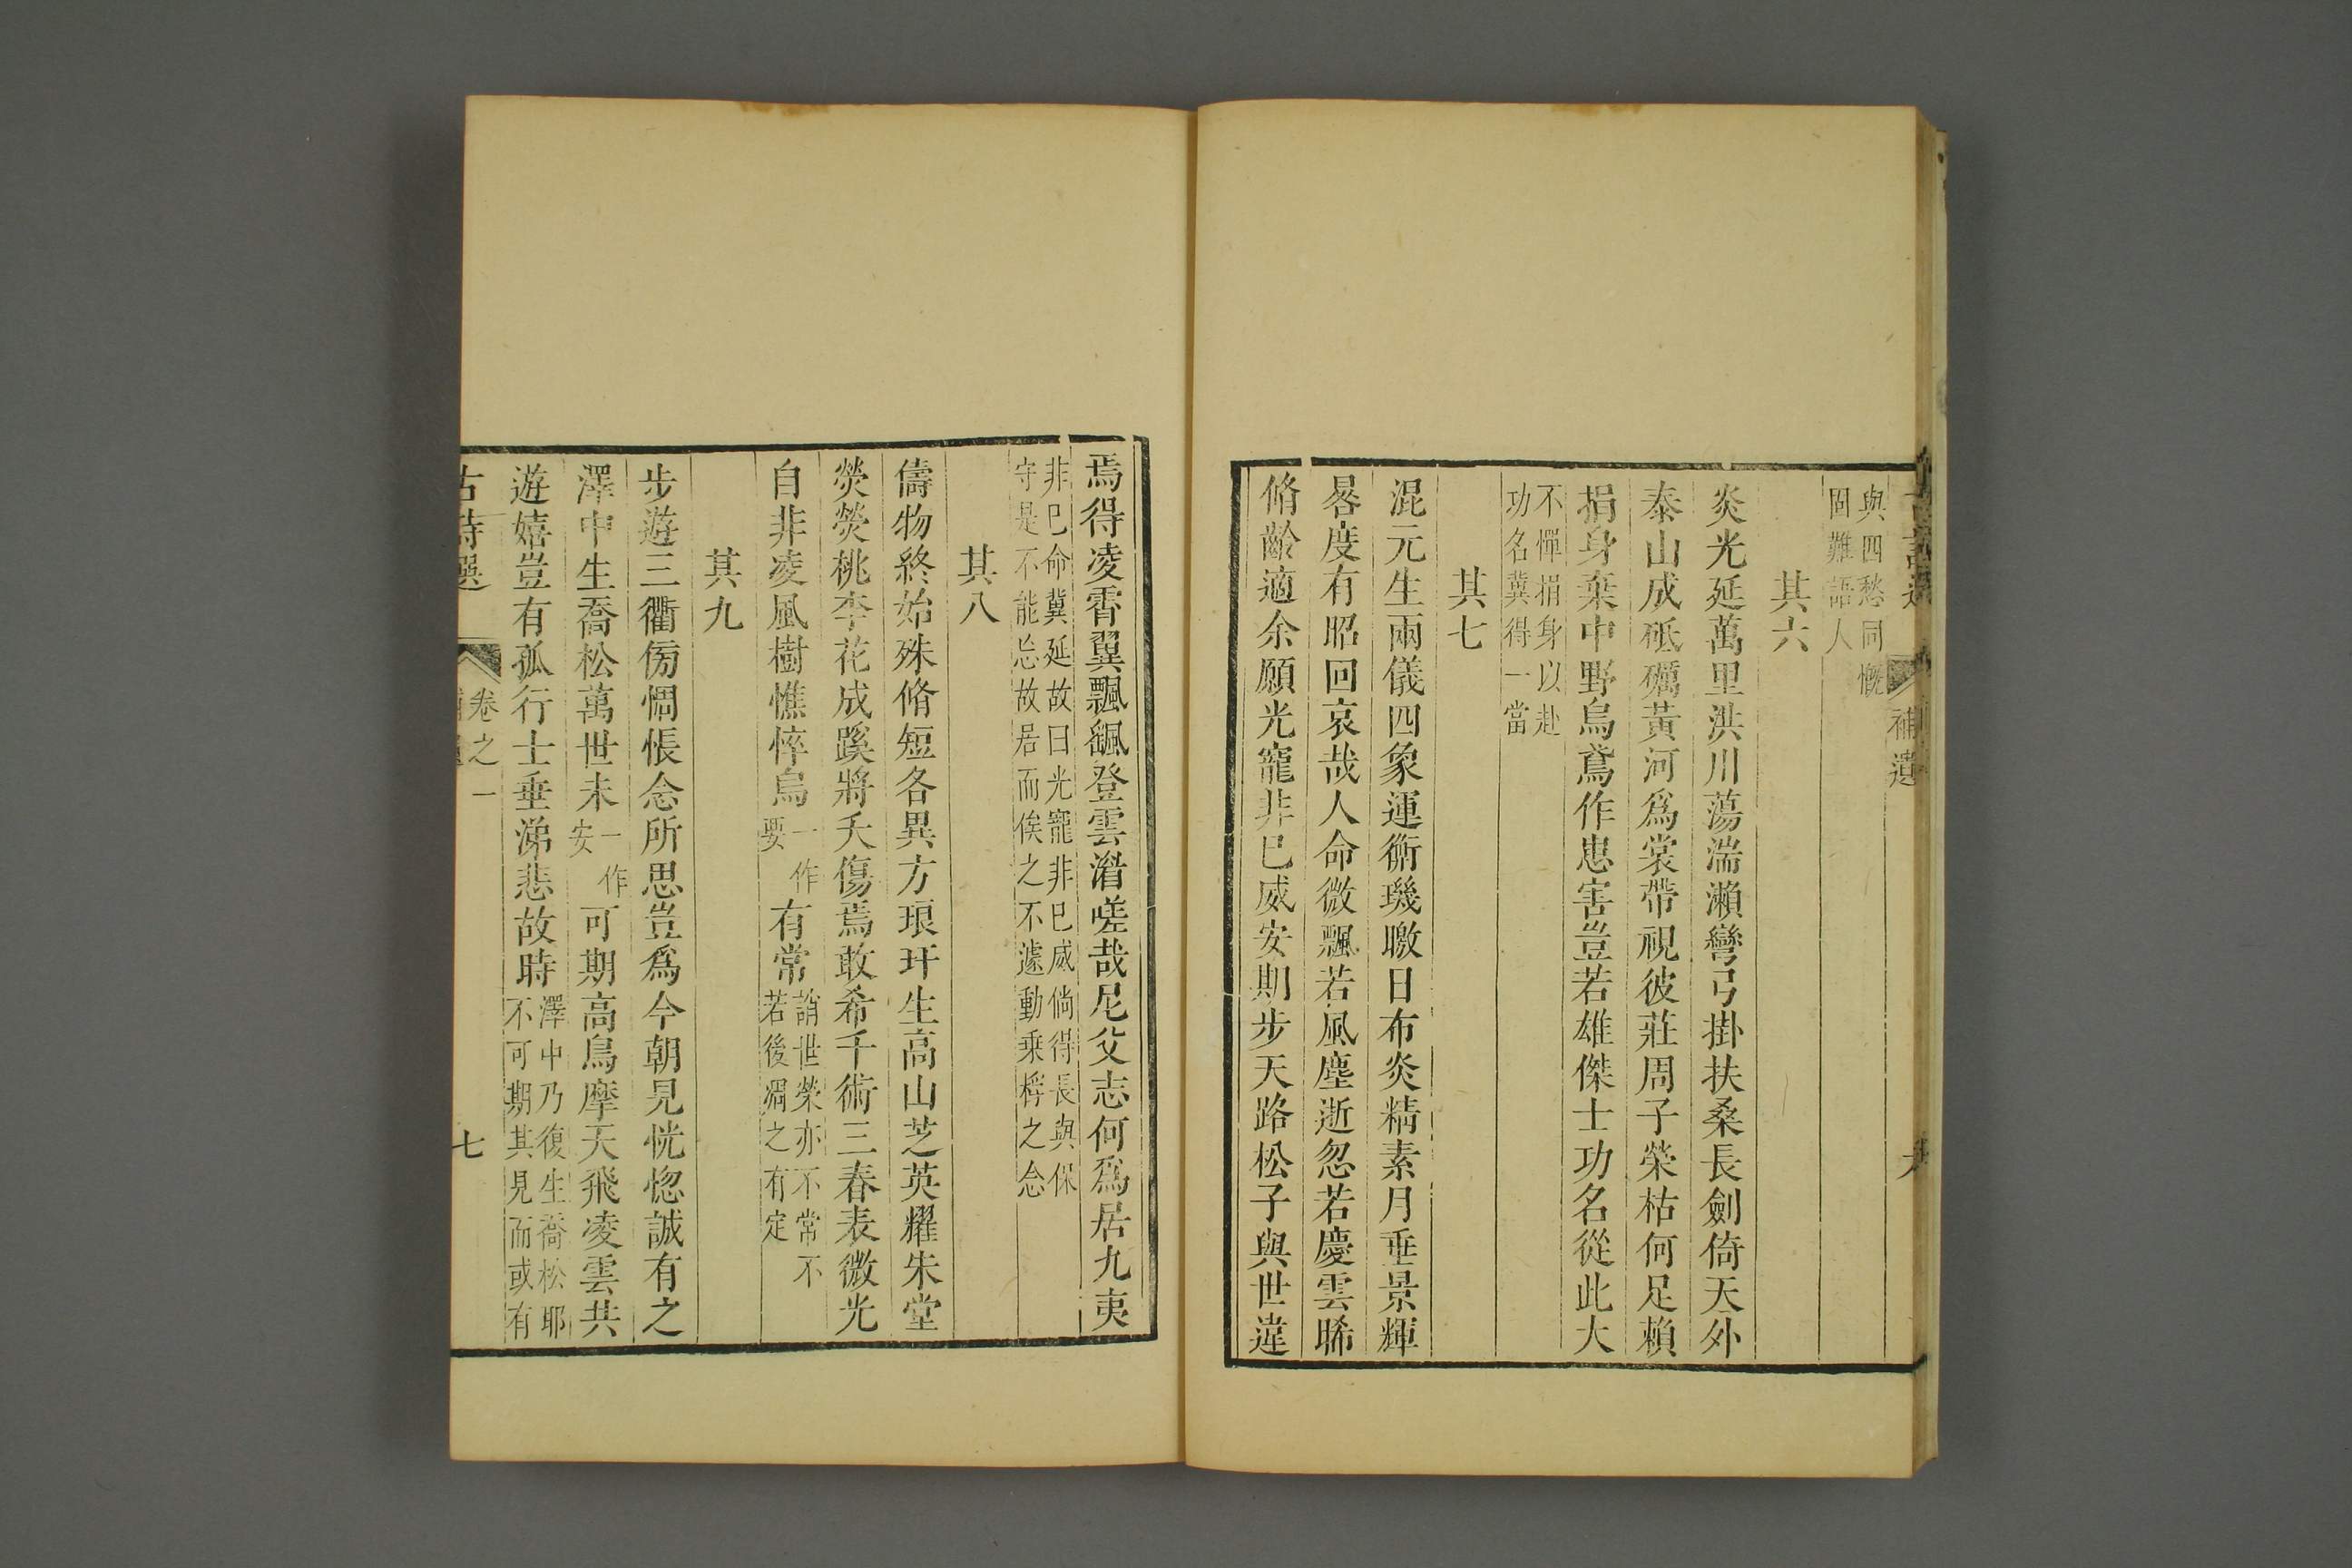 補遺
與四愁同慨
固難語人
其六
炎光延萬里洪川蕩湍瀨彎弓掛扶桑長劍倚天外
泰山成砥礪黃河爲裳帶視彼莊周子榮枯何足賴
捐身棄中野烏鳶作患害豈若雄傑士功名從此大
不憚捐身以赴
功名冀得一當
其七
混元生兩儀四象運衡璣曒日布炎精素月垂景輝
晷度有昭回哀哉人命微飄若風塵逝忽若慶雲晞
脩齡適余願光寵非己威安期步天路松子與世違
焉得凌霄翼飄颻登雲湽嗟哉尼父志何爲居九夷
非己命冀延故曰光寵非己威倘得長與保
守是不能忘故居而俟之不遽動乘桴之念
其八
儔物終始殊脩短各異方琅玕生高山芝英耀朱堂
熒熒桃李花成蹊將夭傷焉敢希千術三春表微光
自非凌風樹憔悴烏一作要有常誚世榮亦不常不
若後凋之有定
其九
步遊三衢傍惆悵念所思豈爲今朝見恍惚誠有之
澤中生喬松萬世未一作安可期高鳥摩天飛凌雲共
遊嬉豈有孤行士垂涕悲故時澤中乃復生喬松耶
不可期其見而或有
古詩選
卷之一
七